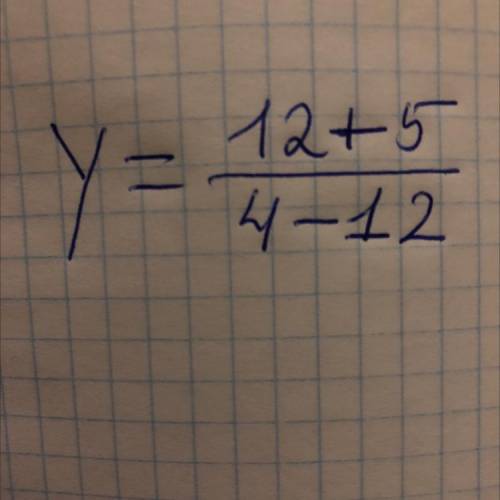 y = \frac{12+5}{4-12}